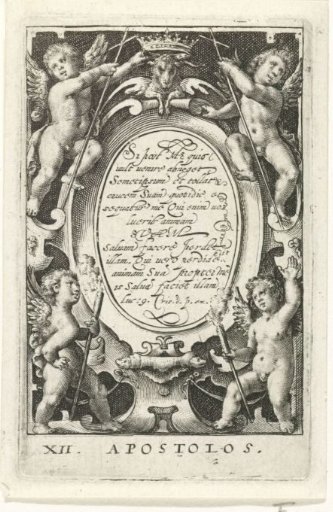 Si post me quis
vult venire abneget
Semetipsum et tollat
crucem Suam quotidie et
sequatur me Qui enim vo
luerit animam
SUAM
salvam facere perdet
illam, Qui vero perdide
animam Sua propter me
Salvā faciet illam,
luc 9.
XII. APOSTOLOS.